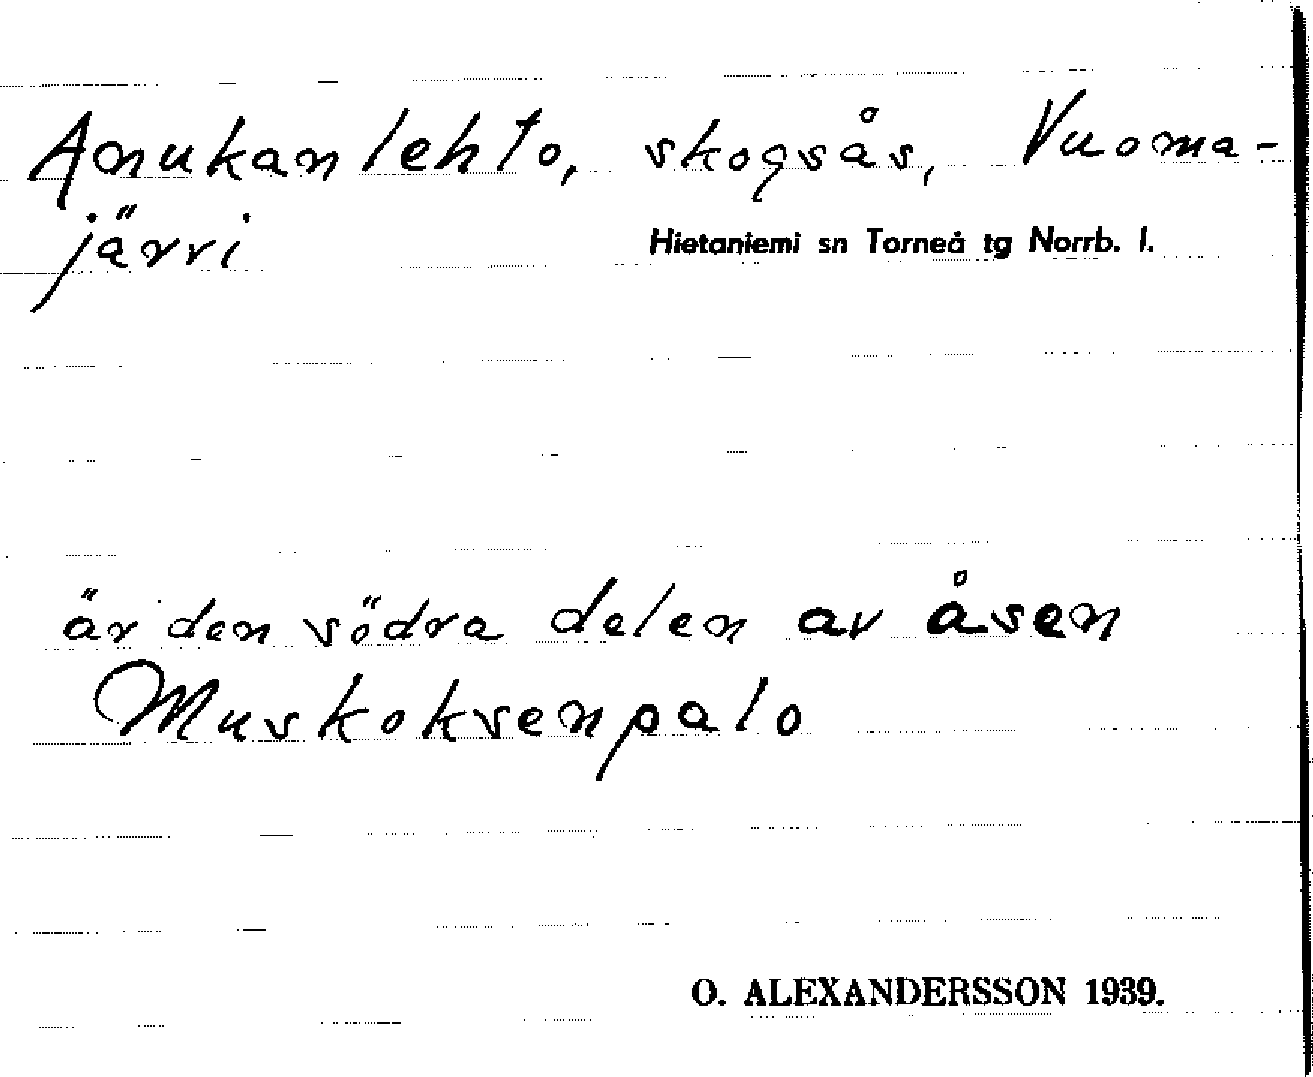 Anukanlehto, skogsås, Vuoma-
järvi
Hietaniemi sn Torneå tg Norrb. l.
är den södra delen av åsen
Muskoksenpalo
O. ALEXANDERSSON 1939.